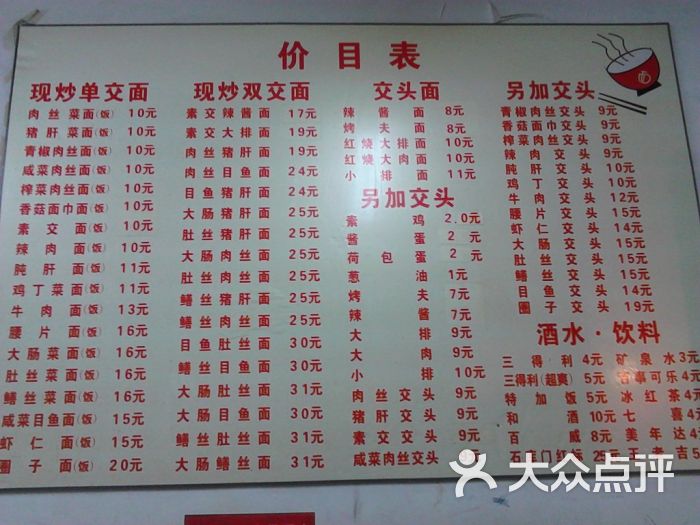 价目表
现炒单交面
肉丝菜面(饭) 10元
猪肝菜面(饭) 10元
青椒肉丝面(饭) 10元
咸菜肉丝面(饭) 10元
榨菜肉丝面(饭) 10元
香菇面巾面(饭) 10元
素交面(饭) 10元
辣肉面(饭) 10元
肫肝面(饭) 11元
鸡丁菜面(饭) 11元
牛肉面(饭) 13元
腰片面(饭) 16元
大肠菜面(饭) 16元
肚丝菜面(饭) 16元
鳝丝菜面(饭) 16元
咸菜目鱼面(饭) 15元
虾仁面(饭) 15元
圈子面(饭) 20元
现炒双交面
素交辣酱面 17元
素交大排面 19元
肉丝猪肝面 19元
肉丝目鱼面 24元
目鱼猪肝面 24元
大肠猪肝面 25元
肚丝猪肝面 25元
大肠肉丝面 25元
肚丝肉丝面 25元
鳝丝猪肝面 25元
鳝丝肉丝面 25元
目鱼肚丝面 30元
鳝丝目鱼面 30元
大肠肚丝面 31元
大肠目鱼面 30元
鳝丝肚丝面 31元
大肠鳝丝面 31元
交头面
辣酱面 8元
烤夫面 8元
红烧大排面 10元
红烧大肉面 10元
小排面 11元
另加交头
素鸡 2.0元
酱蛋 2元
荷包蛋 2元
葱油 1元
烤夫 7元
辣酱 7元
大排 9元
大肉 9元
小排 10元
肉丝交头 9元
猪肝交头 9元
素交交头 9元
咸菜肉丝交头 9元
另加交头
青椒肉丝交头 9元
香菇面巾交头 9元
榨菜肉丝交头 9元
辣肉交头 9元
肫肝交头 10元
鸡丁交头 10元
牛肉交头 12元
腰片交头 15元
虾仁交头 14元
大肠交头 15元
肚丝交头 15元
鳝丝交头 15元
目鱼交头 14元
圈子交头 19元
酒水·饮料
三得利 4元 矿泉水 3元
三得利(超爽) 5元 百事可乐 4元
特加饭 5元 冰红茶 4元
和酒 10元 七喜 4
百威 8元 美年达 4
石库门红标 25元 王老吉 5
大众点评